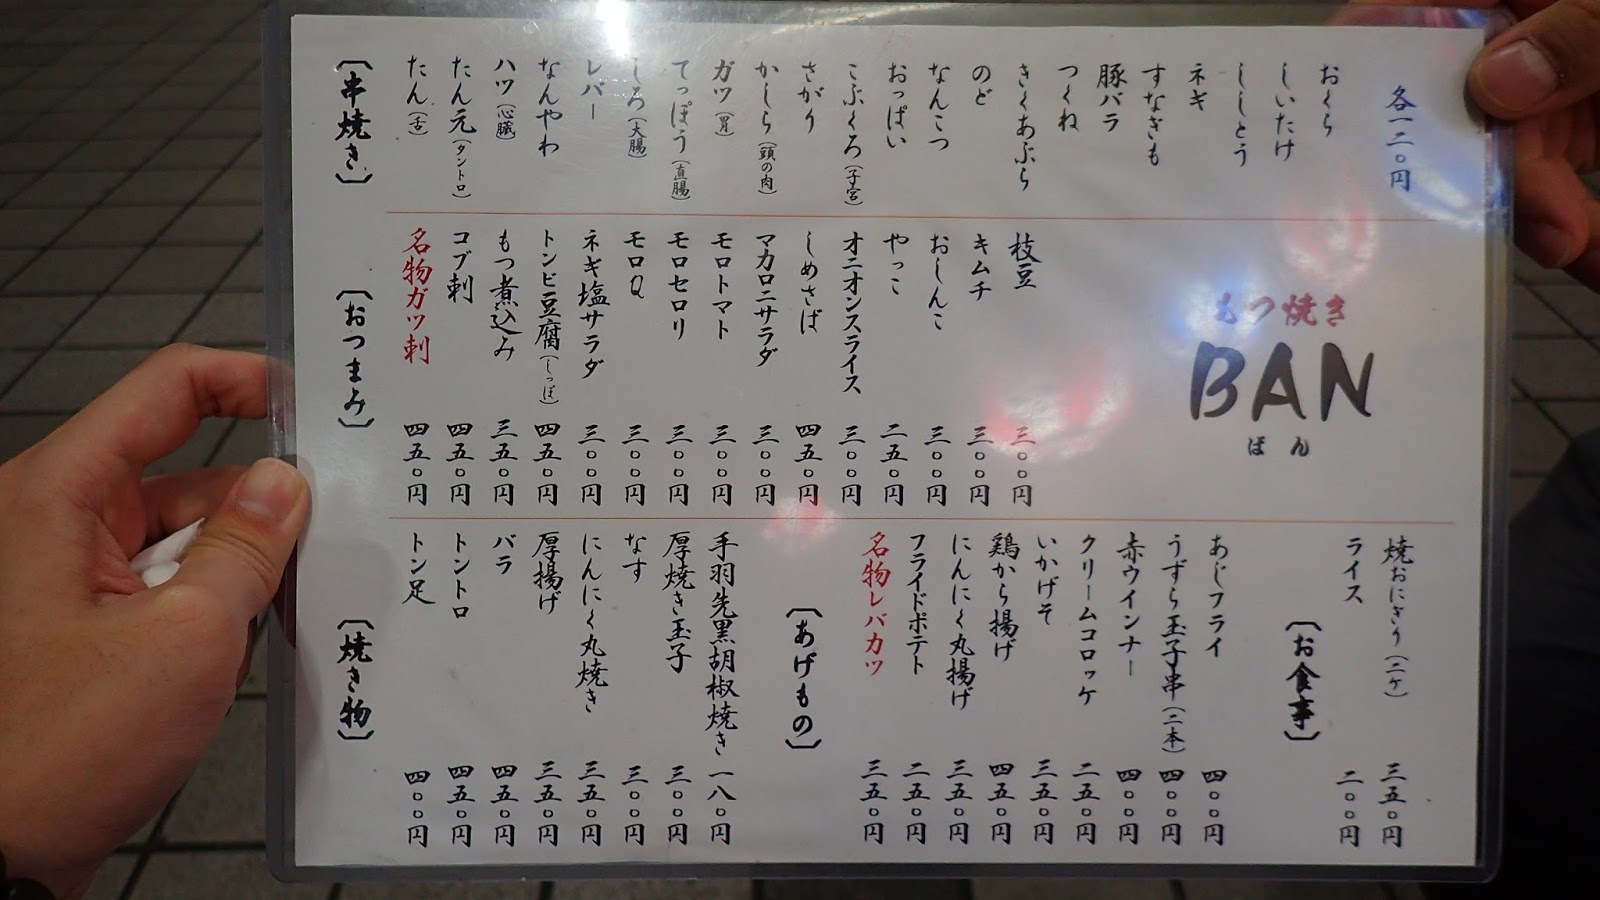 〔串焼き〕
たん（舌）
たん元（タントロ）
ハツ（心臓）
なんやわ
レバー
しろ（大腸）
てっぽう（直腸）
ガツ（胃）
かしら（頭の肉）
さがり
こぶくろ（子宮）
おっぱい
なんこつ
のど
きくあぶら
つくね
豚バラ
すなぎも
ネギ
ししとう
しいたけ
おくら
各一二〇円
〔おつまみ〕
名物ガツ刺 四五〇円
コブ刺 四五〇円
もつ煮込み 三五〇円
トンビ豆腐（しっぽ） 四五〇円
ネギ塩サラダ 三〇〇円
モロQ 三〇〇円
モロセロリ 三〇〇円
モロトマト 三〇〇円
マカロニサラダ 三〇〇円
しめさば 四五〇円
オニオンスライス 三〇〇円
やっこ 二五〇円
おしんこ 三〇〇円
キムチ 三〇〇円
枝豆 三〇〇円
もつ焼き
BAN
ばん
〔焼き物〕
トン足 四〇〇円
トントロ 四五〇円
バラ 四五〇円
厚揚げ 三五〇円
にんにく丸焼き 三五〇円
なす 三〇〇円
厚焼き玉子 三〇〇円
手羽先黒胡椒焼き 一八〇円
〔あげもの〕
名物レバカツ 三五〇円
フライドポテト 二五〇円
にんにく丸揚げ 三五〇円
鶏から揚げ 四五〇円
いかげそ 三五〇円
クリームコロッケ 二五〇円
赤ウインナー 四〇〇円
うずら玉子串（二本） 四〇〇円
あじフライ 四〇〇円
〔お食事〕
ライス 二〇〇円
焼おにぎり（二ケ） 三五〇円